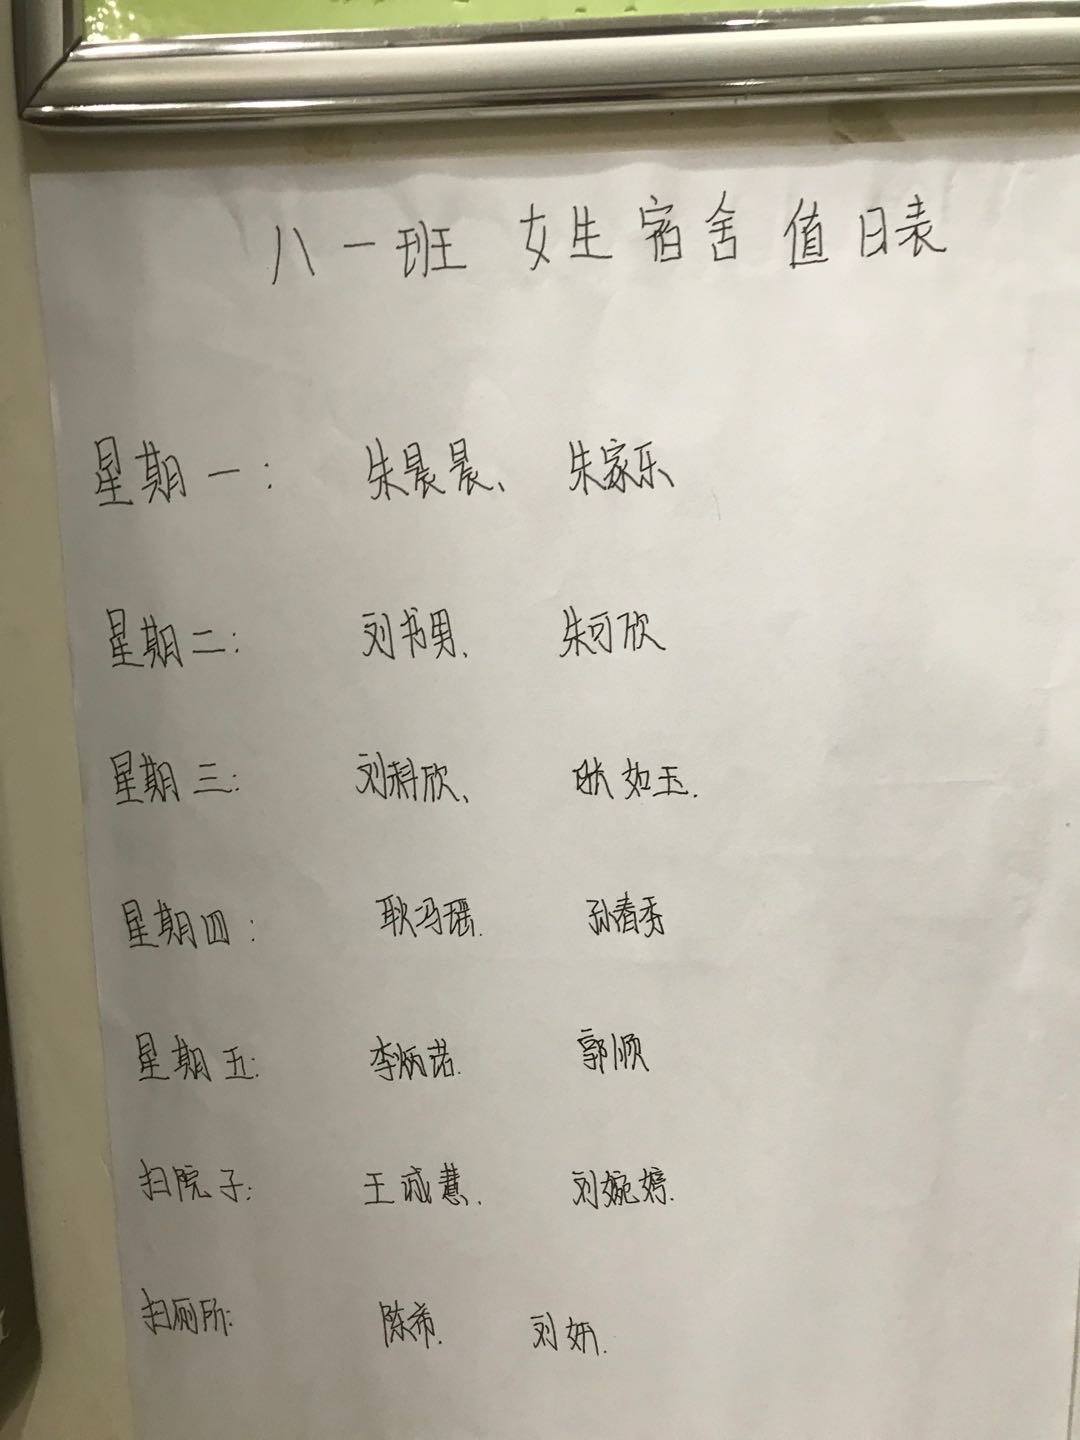 八一班 女生宿舍值日表
星期一: 朱晨晨、 朱家乐
星期二: 刘书男、 朱可欣
星期三: 刘科欣、 如玉.
星期四: 耿冯瑶. 孙春秀
星期五: 李炳诺. 郭顺
扫院子: 王诚慧. 刘婉婷.
扫厕所: 陈希. 刘妍.